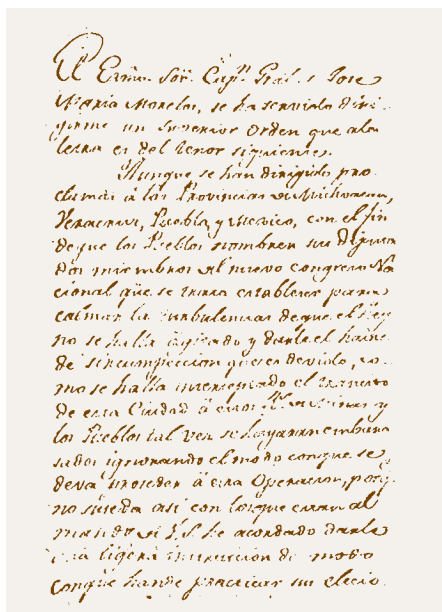 El Exmo. Sor. Capn. Gral. D. Jose
Maria Morelos, se ha servido diri-
girme un Superior Orden que a la
letra es del tenor siguiente.
Aunque se han dirigido pro-
clamas á las Provincias de Michoacan,
Veracruz, Puebla, y Mexico, con el fin
de que los Pueblos nombren sus Diputa
dos miembros del nuevo congreso Na
cional que se trata establecer para
calmar la turbulencia de que el Rey
no se halla agitado y darle el
de que es devido, co-
mo se halla interceptado el transito
de esa Ciudad á esos y
los Pueblos tal ves se hayaran embara
sados ignorando el modo conque se
deva proceder á esa Operacion, porq.
no suceda asi con los que estan al
mando de V.S. he acordado darle
esta ligera instruccion de modo
conque han de practicar su elecio.